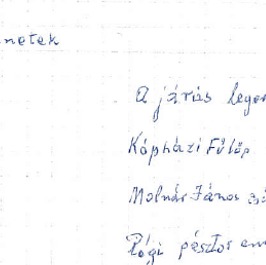 netek
A járás legen
Kópházi Fülöp
Molnár János
Régi pásztor em